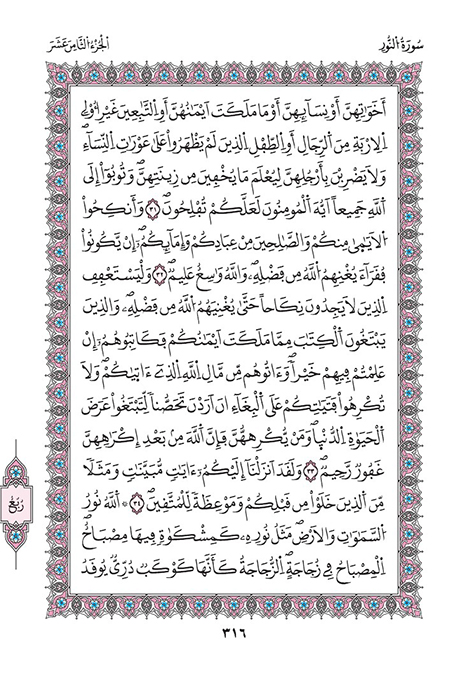 سُورَةُ النُّور
الجُزْءُ الثَّامِنَ عَشَرَ
أَخَوَاتِهِنَّ أَوْ نِسَآئِهِنَّ أَوْ مَا مَلَكَتَ اَيْمَانُهُنَّ أَوِ التَّابِعِينَ غَيْرِ أُوْلِي
اِلِارْبَةِ مِنَ الرِّجَالِ أَوِ الطِّفْلِ الذِينَ لَمْ يَظْهَرُوا عَلَى عَوْرَاتِ النِّسَآءِ
وَلَا يَضْرِبْنَ بِأَرْجُلِهِنَّ لِيُعْلَمَ مَا يُخْفِينَ مِن زِينَتِهِنَّ وَتُوبُوا إِلَى
اَللَّهِ جَمِيعاً اَيُّهَ اَلْمُومِنُونَ لَعَلَّكُمْ تُفْلِحُونَ ٣١ وَأَنكِحُوا
اُلَايَامَى مِنكُمْ وَالصَّالِحِينَ مِنْ عِبَادِكُمْ وَإِمَآئِكُمْ إِن يَّكُونُوا
فُقَرَآءَ يُغْنِهِمُ اللَّهُ مِن فَضْلِهِ وَاللَّهُ وَاسِعٌ عَلِيمٌ ٣٢ وَلْيَسْتَعْفِفِ
اِلذِينَ لَا يَجِدُونَ نِكَاحاً حَتَّى يُغْنِيَهُمُ اللَّهُ مِن فَضْلِهِ وَالذِينَ
يَبْتَغُونَ اَلْكِتَابَ مِمَّا مَلَكَتَ اَيْمَانُكُمْ فَكَاتِبُوهُمُ إِنْ
عَلِمْتُمْ فِيهِمْ خَيْراً وَءَاتُوهُم مِّن مَّالِ اِللَّهِ الذِي ءَاتَاكُمْ وَلَا
تُكْرِهُوا فَتَيَاتِكُمْ عَلَى اَلْبِغَآءِ انَ اَرَدْنَ تَحَصُّناً لِّتَبْتَغُوا عَرَضَ
اَلْحَيَوٰةِ اِلدُّنْيَا وَمَنْ يُّكْرِههُّنَّ فَإِنَّ اَللَّهَ مِنْ بَعْدِ إِكْرَاهِهِنَّ
غَفُورٌ رَّحِيمٌ ٣٣ وَلَقَدَ اَنزَلْنَا إِلَيْكُمُ ءَايَاتٍ مُّبَيَّنَاتٍ وَمَثَلًا
مِّنَ اَلذِينَ خَلَوْا مِن قَبْلِكُمْ وَمَوْعِظَةً لِّلْمُتَّقِينَ ٣٤ اَللَّهُ نُورُ
اُلسَّمَاوَاتِ وَالَارْضِ مَثَلُ نُورِهِ كَمِشْكَوٰةٍ فِيهَا مِصْبَاحٌ
اِلْمِصْبَاحُ فِي زُجَاجَةٍ اِلزُّجَاجَةُ كَأَنَّهَا كَوْكَبٌ دُرِّيٌّ يُوقَدُ
رُبُع
٣١٦